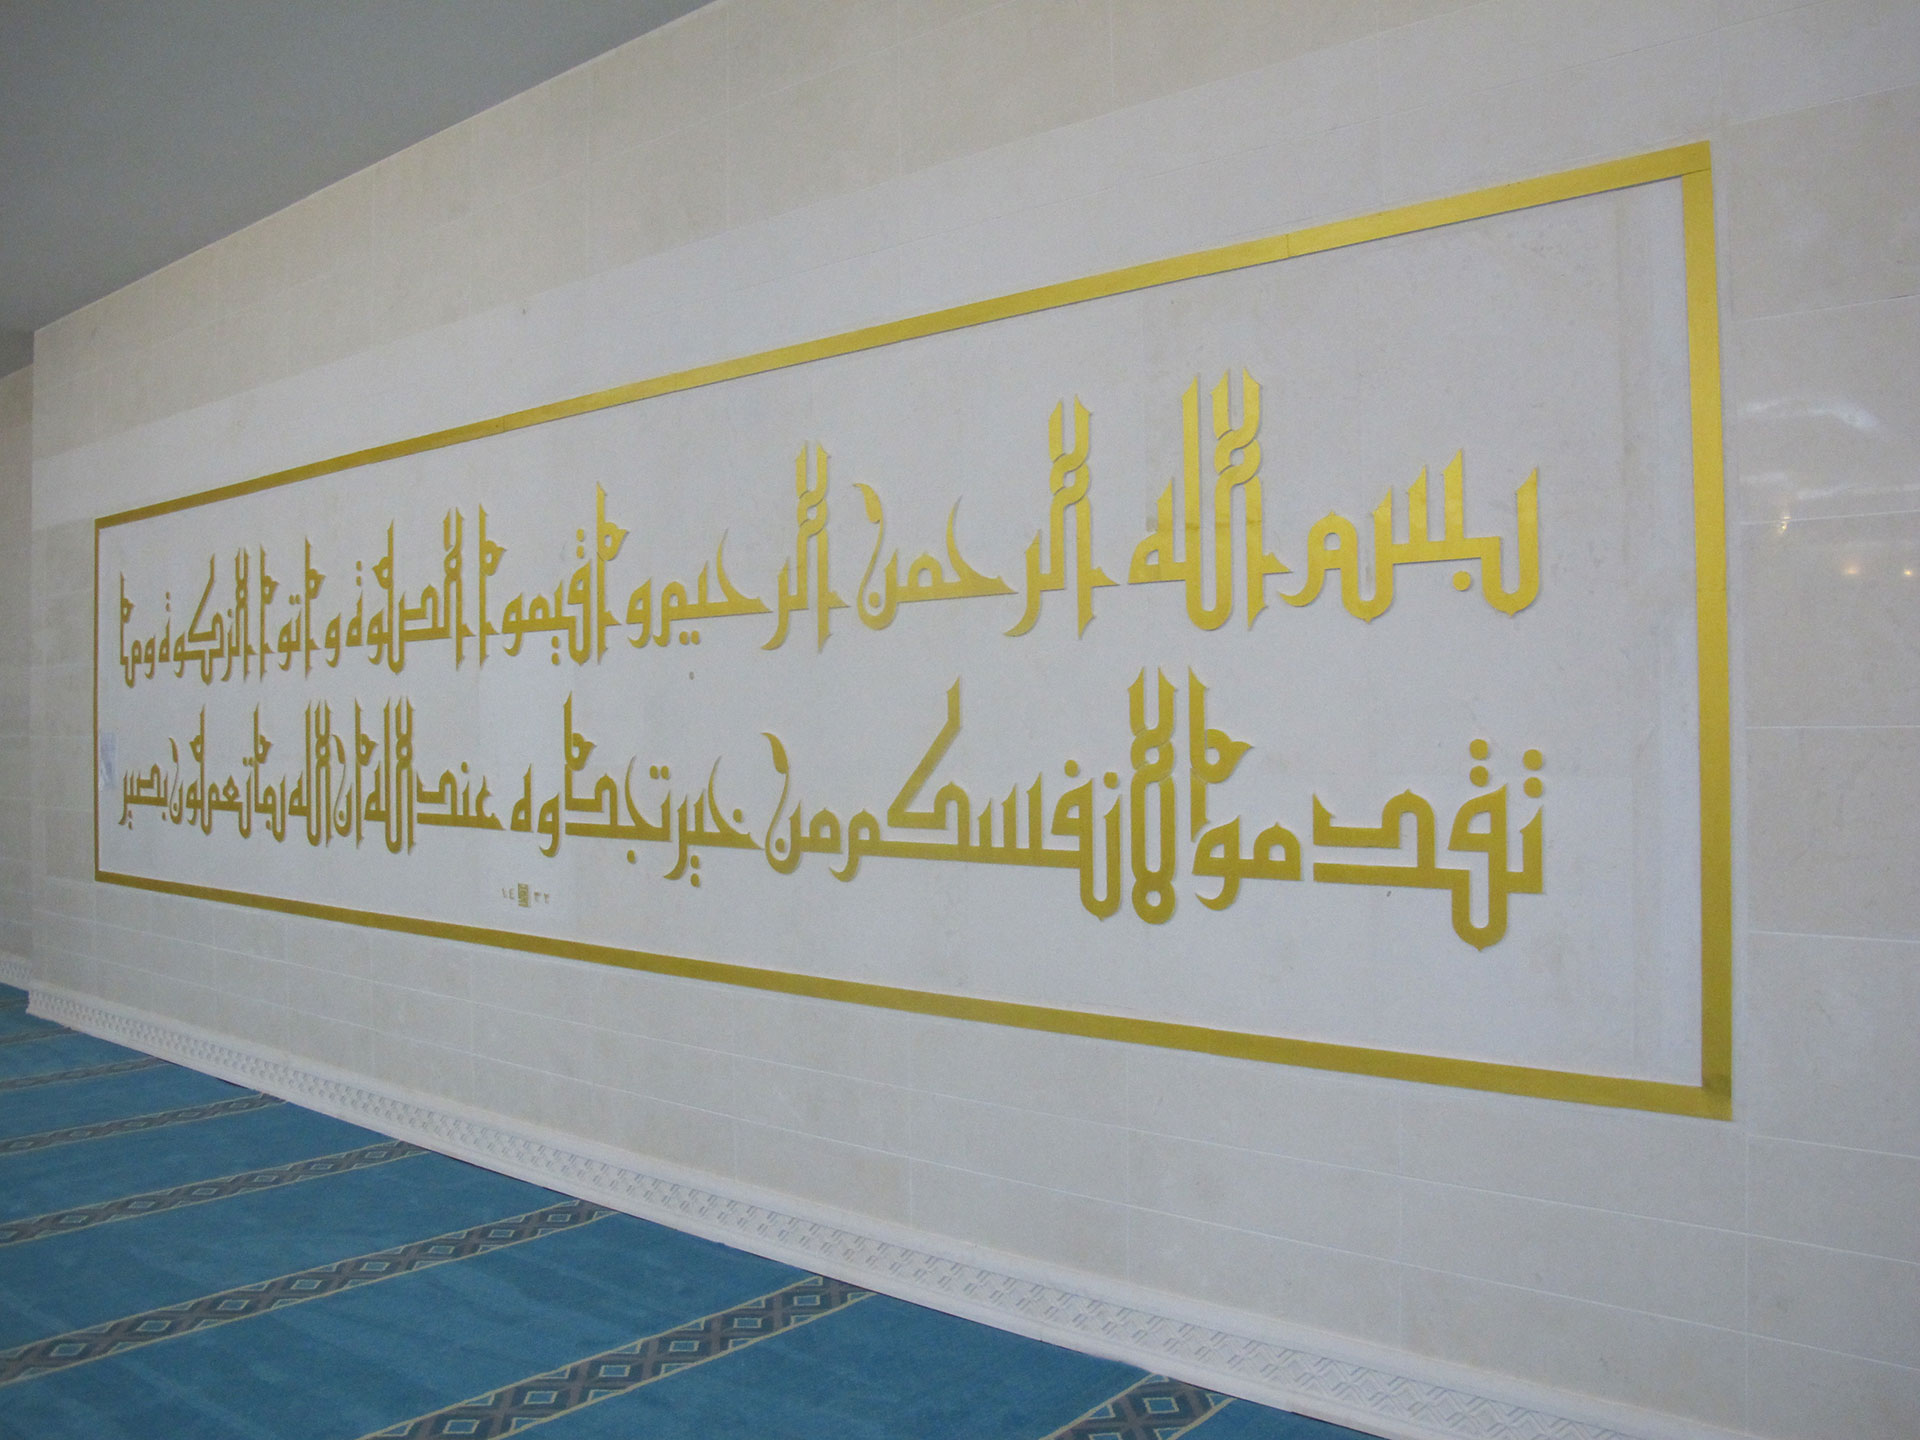 بسم الله الرحمن الرحيم واقيموا الصلوة واتوا الزكوة وما
تقدموا لانفسكم من خير تجدوه عند الله ان الله بما تعملون بصير
١٤٣٢